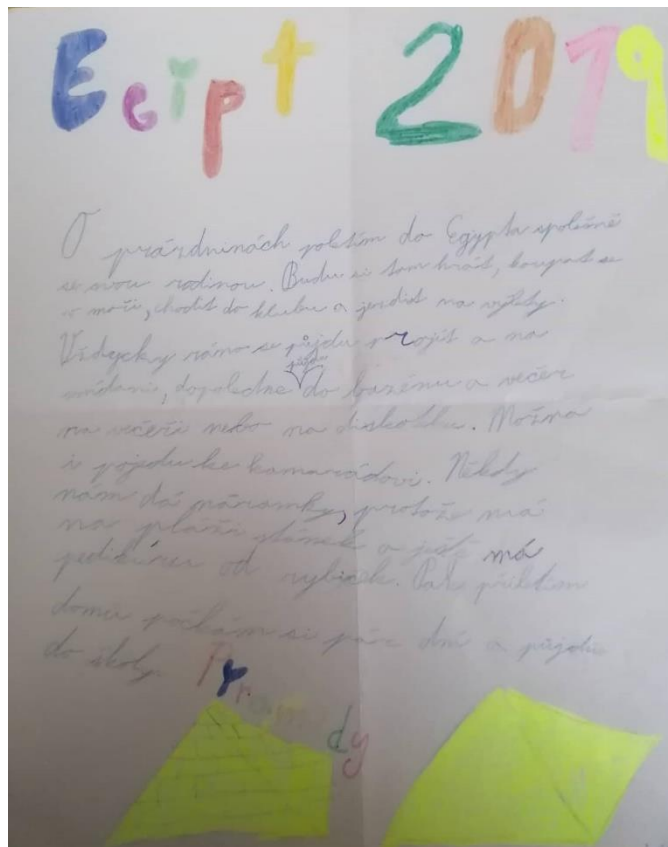 Egipt 2019
O prázdninách poletím do Egypta společně
se svou rodinou. Budu si tam hrát, koupat se
v moři, chodit do klubu a jezdit na výlety.
Vždycky ráno se půjdu projít a na
snídani, dopoledne půjdu do bazénu a večer
na večeři nebo na diskotéku. Možná
i pojedu ke kamarádovi. Někdy
nám dá náramky, protože má
na pláži stánek a ještě má
pedikúru od rybiček. Pak přiletím
domů počkám si pár dní a půjdu
do školy.
Pyramidy